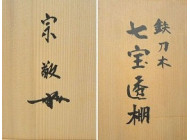 鉄刀木
七宝透棚
宗敬